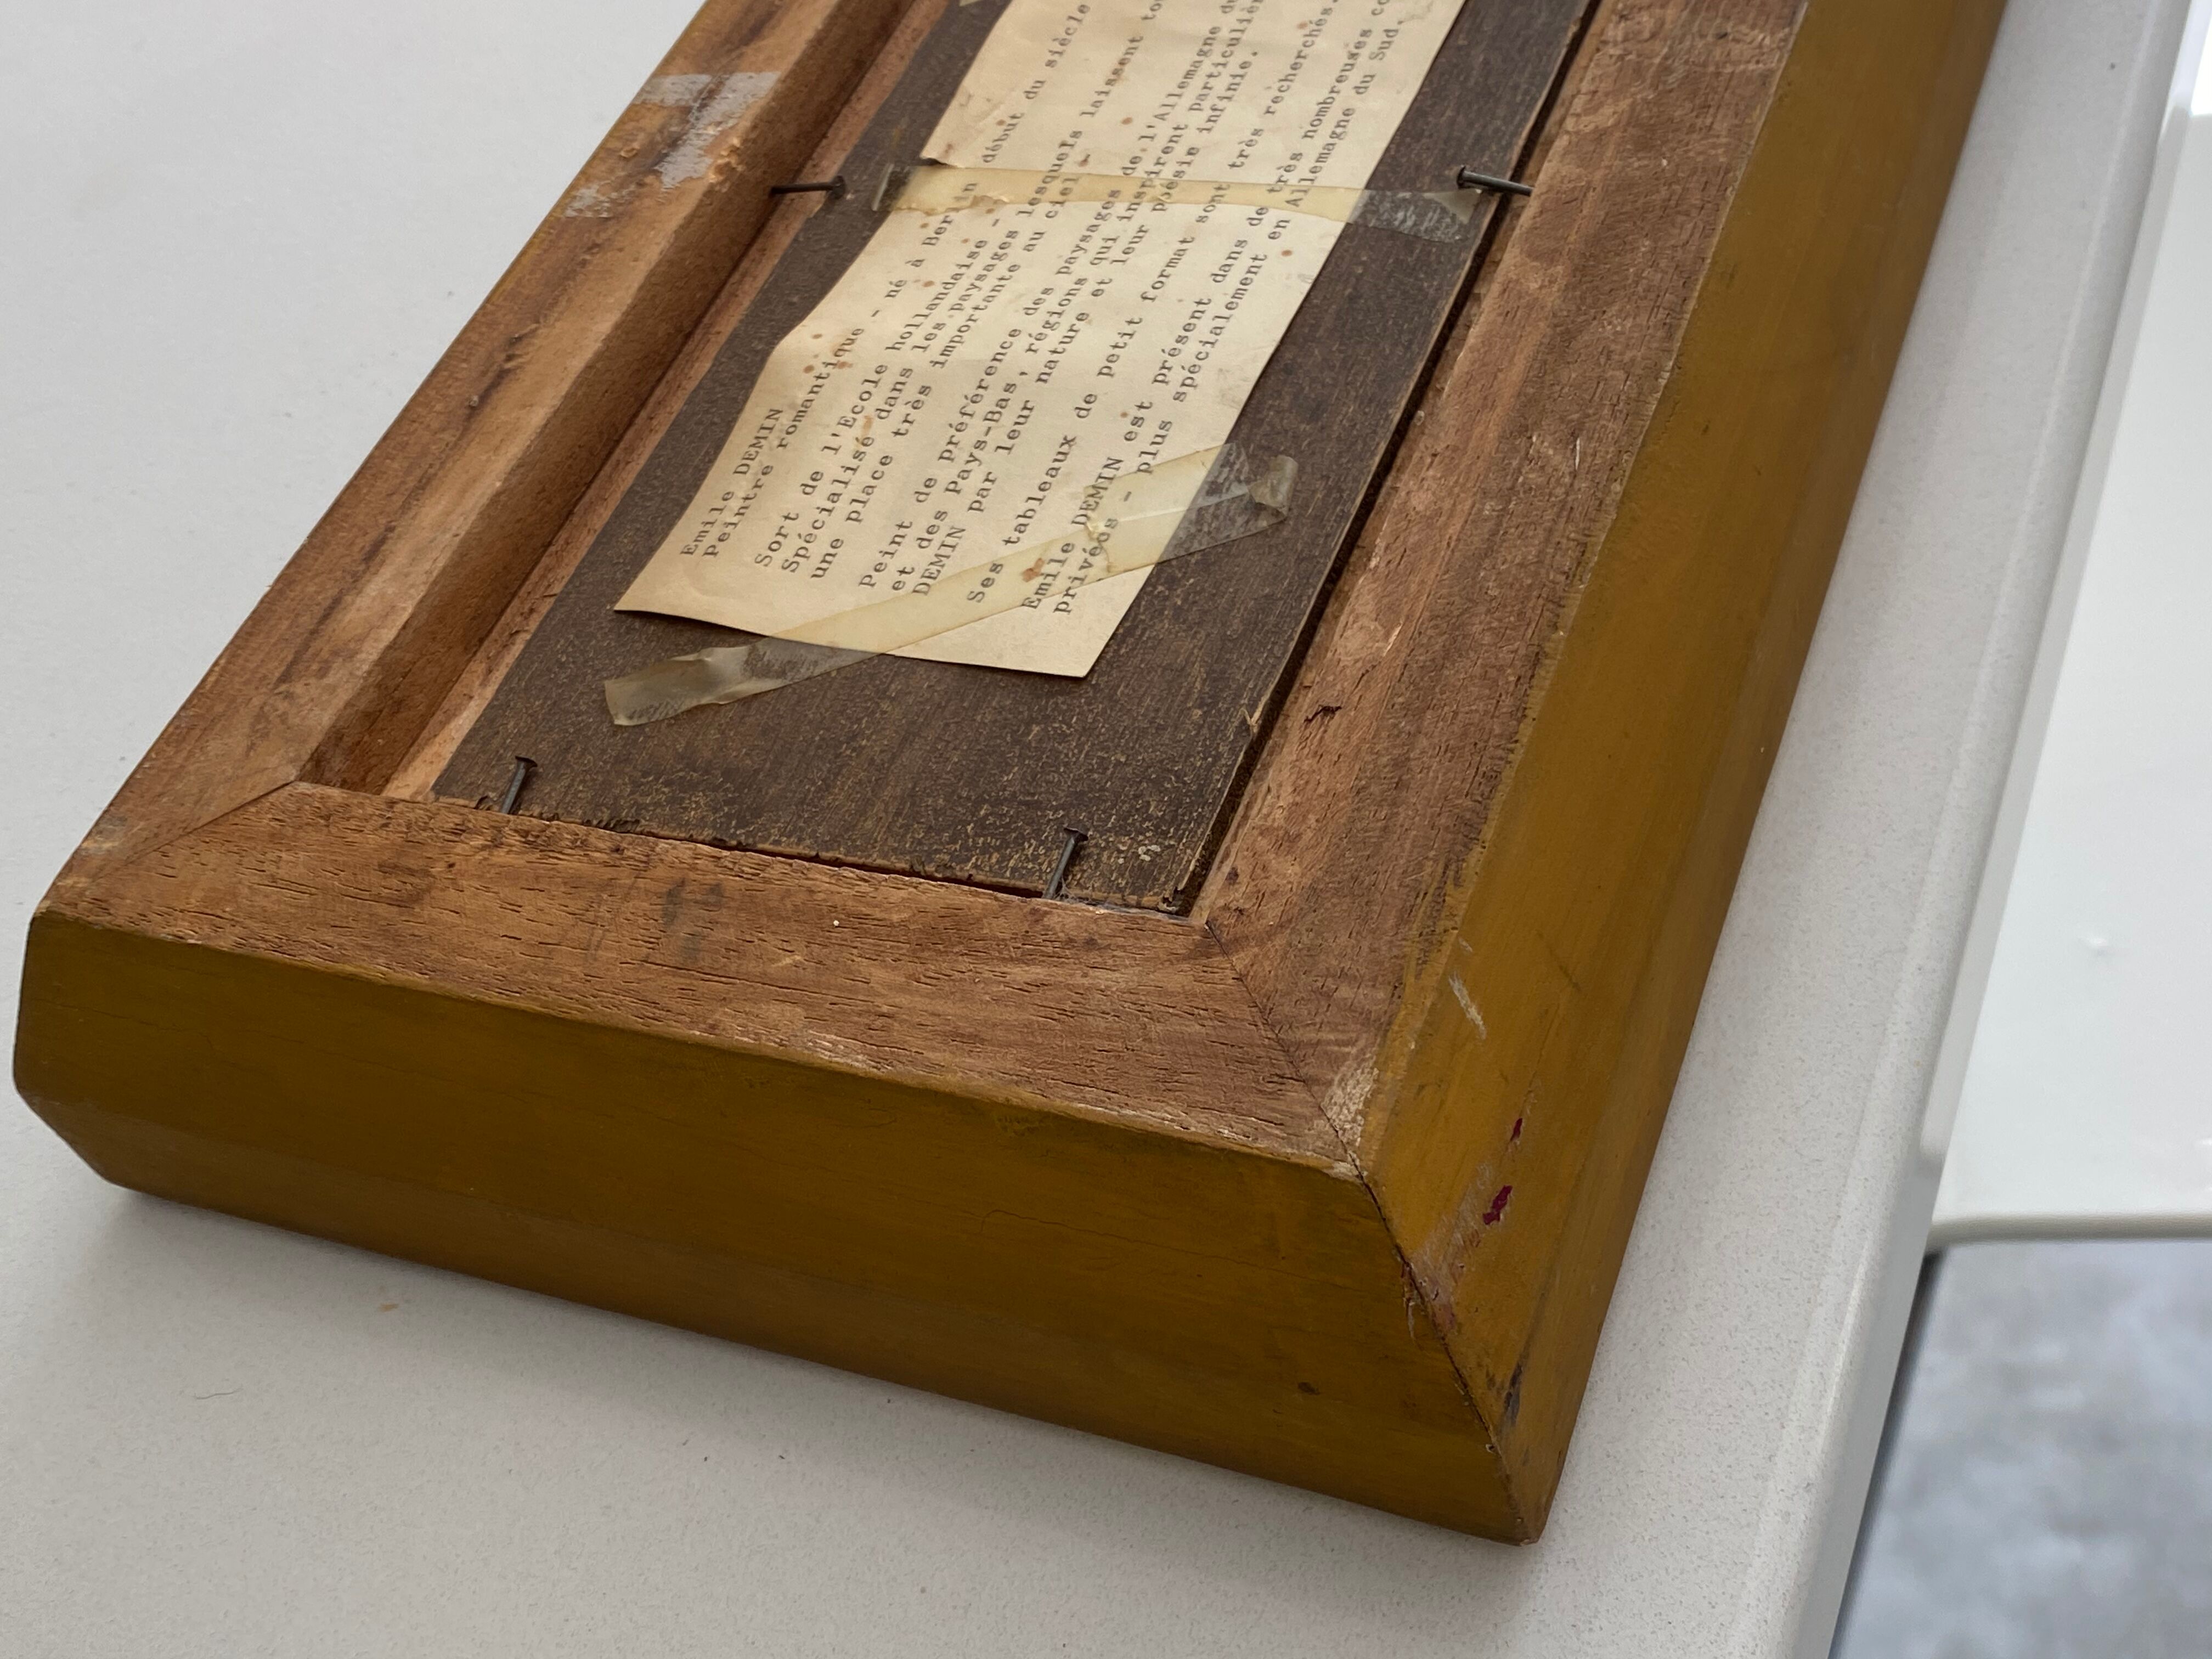 Emile DEMIN
Peintre romantique - né à Berlin début du siècle
Sort de l'Ecole hollandaise -
Spécialisé dans les paysages lesquels laissent
une place très importante au ciel -
Peint de préférence des paysages de l'Allemagne
et des Pays-Bas, régions qui inspirent
DEMIN par leur nature et leur poésie infinie.
Ses tableaux de petit format sont très recherchés.
Emile DEMIN est présent dans de très nombreuses
privées - plus spécialement en Allemagne du Sud.